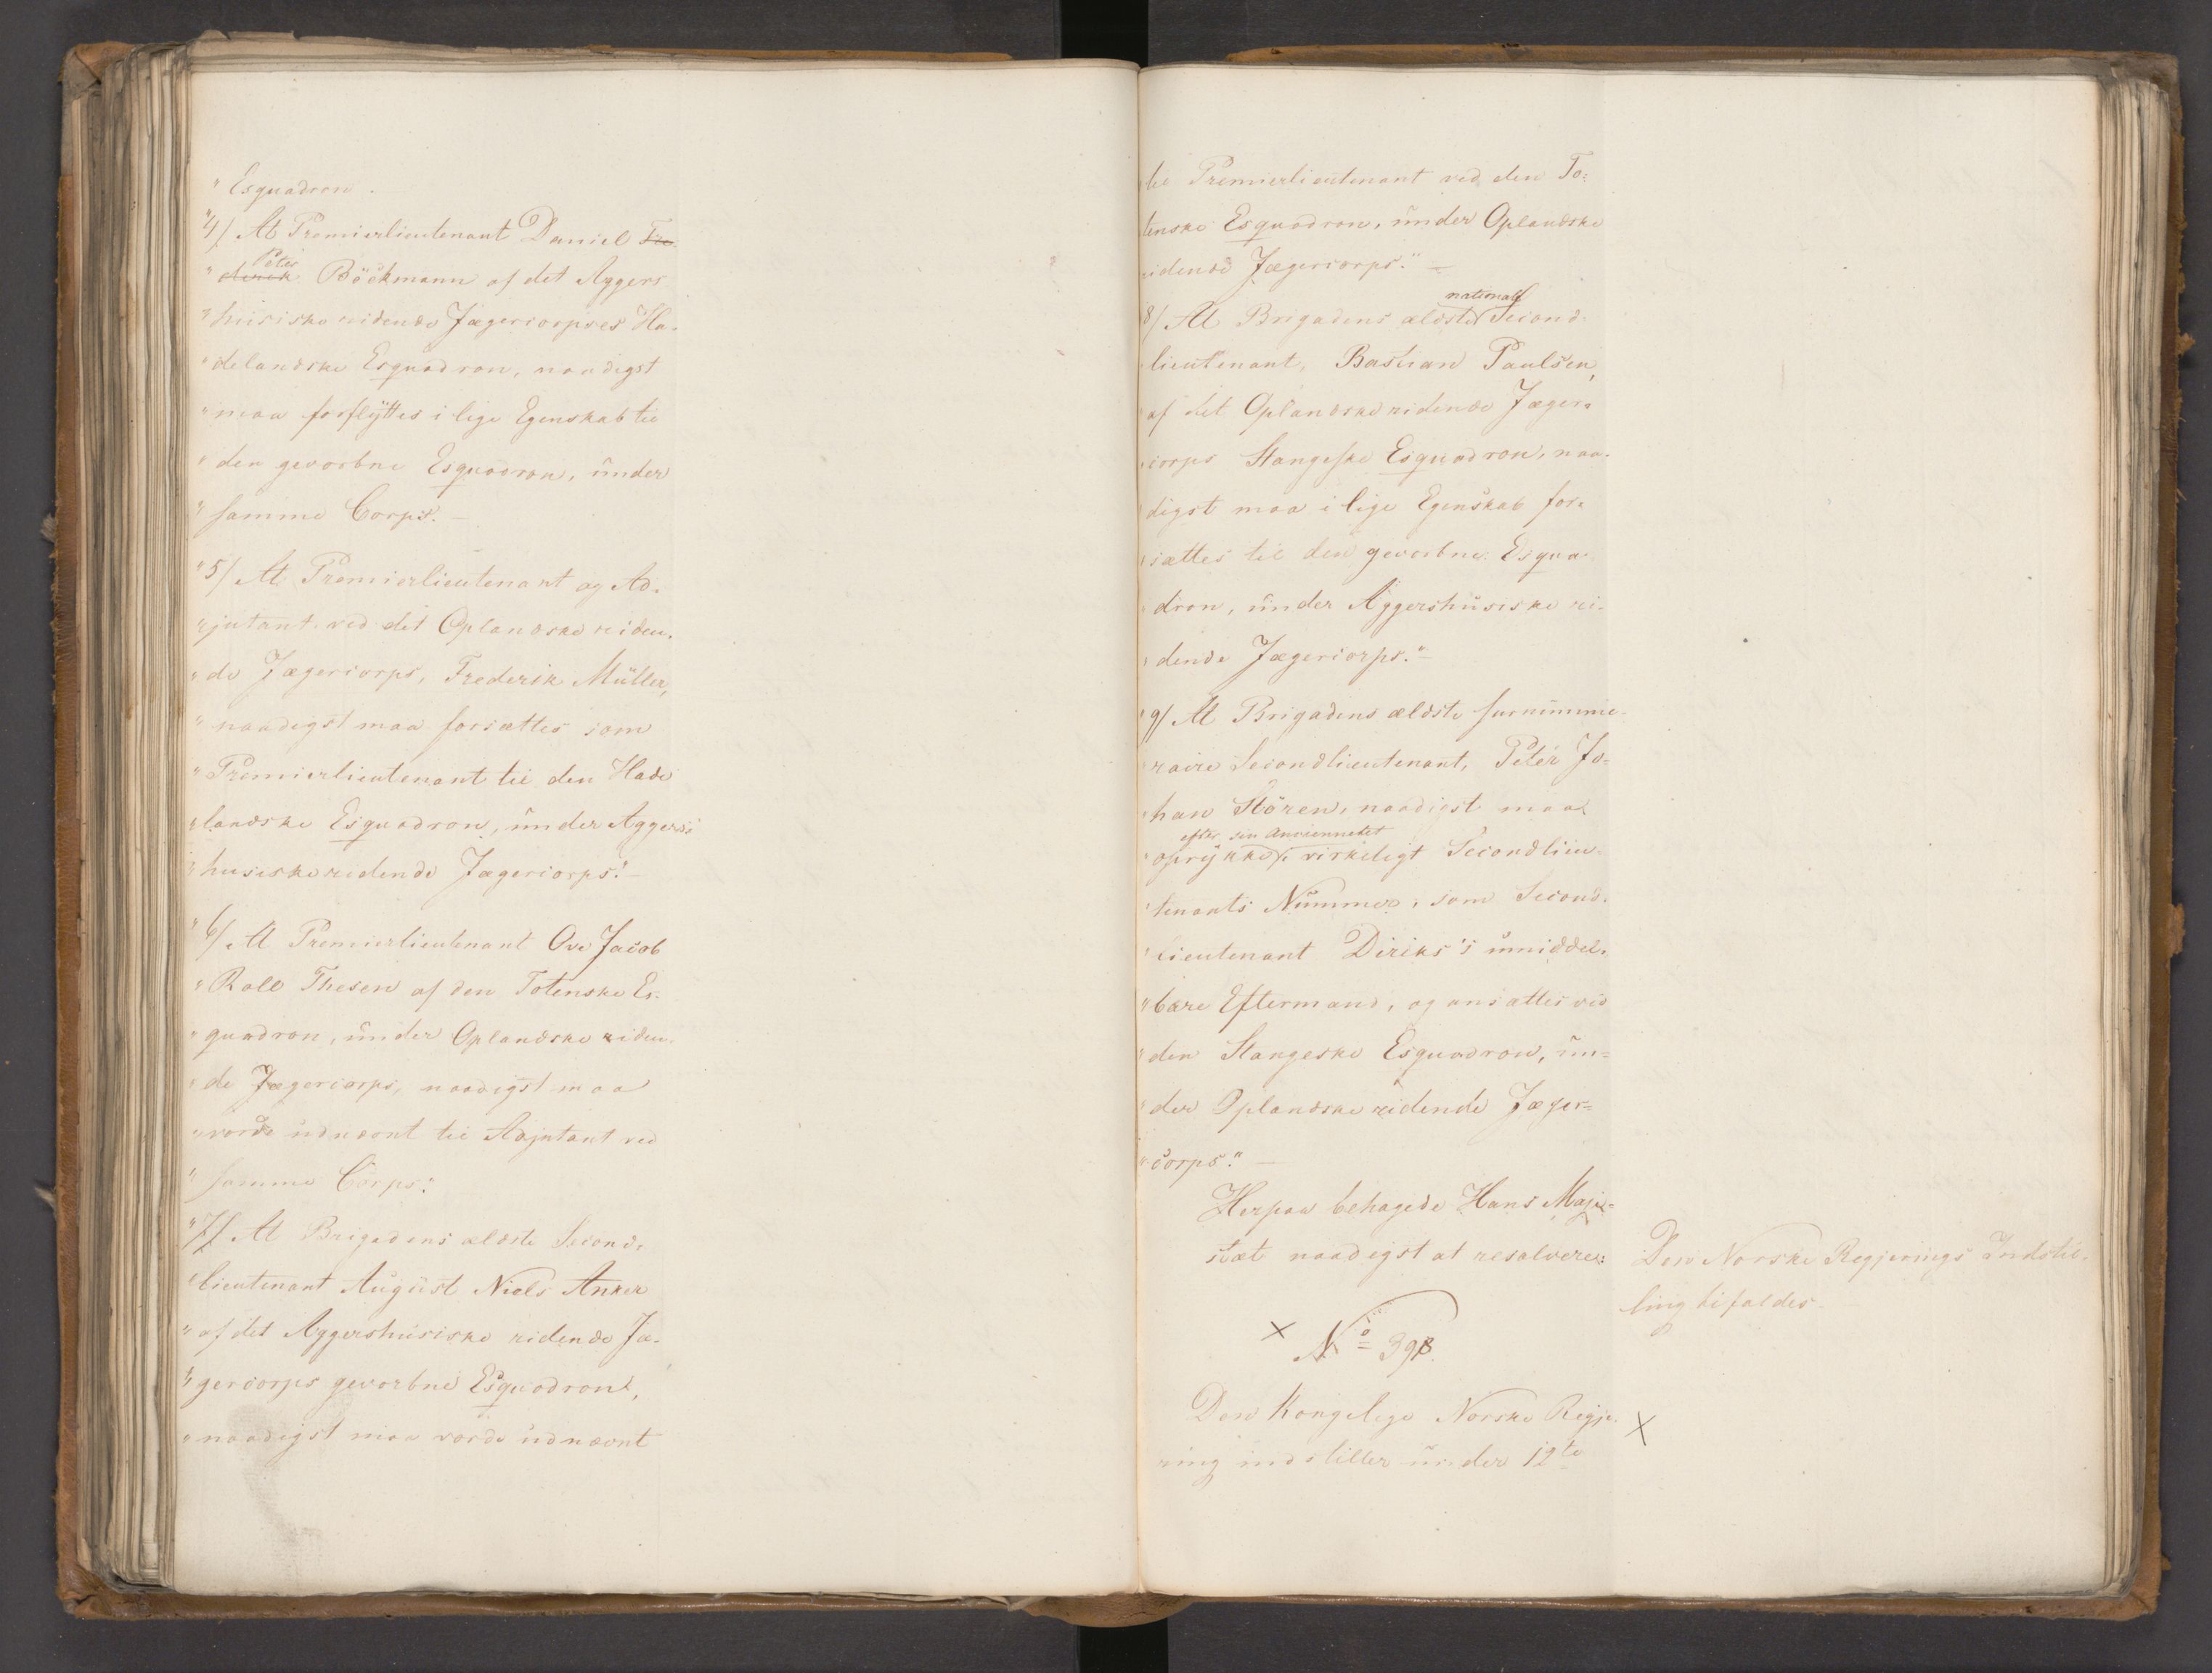 " Esquadron.
"4/ At Premierlieutenant Daniel Fre-
Peter
" derich Böckmann af det Aggers
" huusiske ridende Jægercorpses Ha-
" delandske Esquadron, naadigst
" maa forflyttes i lige Egenskab til
" den gevorbne Esquadron, under
" samme Corps." —
"5/ At Premierlieutenant og Ad-
" jutant ved det Oplandske riden-
" de Jægercorps, Frederik Müller,
" naadigst maa forsættes som
" Premierlieutenant til den Hade
" landske Esquadron, under Aggers
" husiske ridende Jægercorps." —
"6/ At Premierlieutenant Ove Jacob
" Roll Thesen af den Totenske Es-
" quadron, under Oplandske riden-
" de Jægercorps, naadigst maa
" vorde udnævnt til Adjutant ved
" samme Corps."
"7/ At Brigadens ældste Second-
" lieutenant August Niels Anker
" af det Aggershusiske ridende Jæ-
" gercorps gevorbne Esquadron,
" naadigst maa vorde udnævnt
" til Premierlieutenant ved den To-
tenske Esquadron, under Oplandske
ridende Jægercorps." —
national
8/ At Brigadens ældste Second-
" lieutenant, Bastian Paulsen,
" af det Oplandske ridende Jæger-
" corps Stangeske Esquadron, naa-
" digst maa i lige Egenskab for-
" sættes til den gevorbne Esqua-
" dron, under Aggershusiske ri-
" dende Jægercorps." —
"9/ At Brigadens ældste surnumme-
" raire Secondlieutenant, Peter Jo-
" han Stören, naadigst maa
efter sin Anciennetet
" oprykke i virkeligt Secondlieu-
" tenants Nummer, som Second-
" lieutenant Diriks's umiddel-
" bare Eftermand, og ansættes ved
" den Stangeske Esquadron, un-
" der Oplandske ridende Jæger-
" corps." —
Herpaa behagede Hans Maje-
stæt naadigst at resolvere:
Den Norske Regjerings Indstil-
ling bifaldes.
× No 398.
Den Kongelige Norske Regje- ×
ring indstiller under 12te